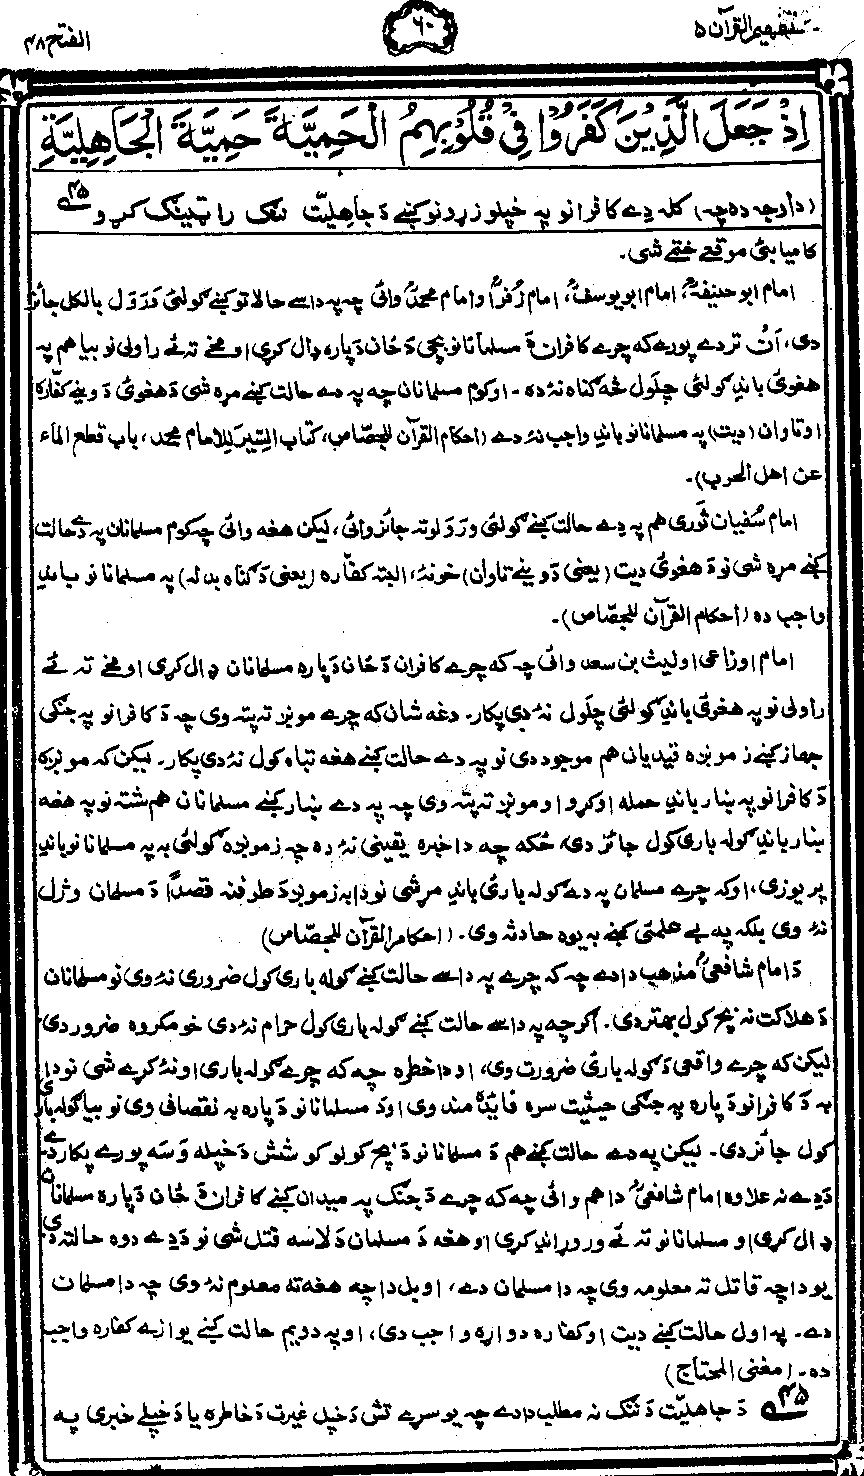 تفهیم القرآن ۵
۶۰
الفتح ۴۸
اِذْ جَعَلَ الَّذِيْنَ كَفَرُوْا فِيْ قُلُوْبِهِمُ الْحَمِيَّةَ حَمِيَّةَ الْجَاهِلِيَّةِ
(دا وجه ده چه) کله دے کافرانو په خپلو زړونو کښے دَ جاهلیّت ننګ راټینګ کړو ۴۵
کامیابئ موقعے ختمے شی۔
امام ابو حنیفهؒ، امام ابو یوسفؒ، امام زُفرؒ او امام محمدؒ وائی چه په داسے حالاتو کښے ګولئ وَرَوَل بالکل جائز
دی، اَن تر دے پورے که چرے کافران دَ مسلمانانو بچی دَ ځان دَپاره ډال کړی او مخے ته ئے راولی نو بیا هم په
هغوئ باندِ ګولئ چلول څه ګناه نهٔ ده۔ او کوم مسلمانان چه په دے حالت کښے مره شی دَ هغوئ دَ وینے کفّاره
او تاوان (دیت) په مسلمانانو باندِ واجب نهٔ دے (احکام القرآن للجصّاص، کتاب السّیر للامام محمد، باب قطع الماء
عن اهل الحرب)۔
امام سُفیان ثَوری هم په دے حالت کښے ګولئ ورَوَلو ته جائز وائی، لیکن هغه وائی چه کوم مسلمانان په دے حالت
کښے مره شی نو دَ هغوئ دیت (یعنی دَ وینے تاوان) خو نهٔ، البته کفّاره (یعنی دَ ګناه بدله) په مسلمانانو باندِ
واجب ده (احکام القرآن للجصّاص)۔
امام اوزاعی او لیث بن سعد وائی چه که چرے کافران دَ ځان دَپاره مسلمانان ډال کړی او مخے ته ئے
راولی نو په هغوئ باندِ ګولئ چلول نهٔ دی پکار۔ دغه شان که چرے مونږ ته پته وی چه دَ کافرانو په جنګی
جهاز کښے زمونږه قیدیان هم موجود دی نو په دے حالت کښے هغه تباه کول نهٔ دی پکار۔ لیکن که مونږه
دَ کافرانو په ښار باندِ حمله اوکړو او مونږ ته پته وی چه په دے ښار کښے مسلمانان هم شته نو په هغه
ښار باندِ ګوله باری کول جائز دی، ځکه چه دا خبره یقینی نهٔ ده چه زمونږه ګولئ به په مسلمانانو باندِ
پریوزی، او که چرے مسلمان په دے ګوله بارئ باندِ مړ شی نو دا به زمونږ دَ طرفنه قصداً دَ مسلمان وژل
نهٔ وی بلکه په بے علمئ کښے به یوه حادثه وی۔ (احکام القرآن للجصّاص)
دَ امام شافعیؒ مذهب دا دے چه که چرے په داسے حالت کښے ګوله باری کول ضروری نهٔ وی نو مسلمانان
دَ هلاکت نه بچ کول بهتر دی۔ اګرچه په داسے حالت کښے ګوله باری کول حرام نهٔ دی خو مکروه ضرور دی
لیکن که چرے واقعی دَ ګوله بارئ ضرورت وی، او دا خطره چه که چرے ګوله باری اونهٔ کړے شی نو دا
به دَ کافرانو دَپاره په جنګی حیثیت سره فائده مند وی او دَ مسلمانانو دَپاره به نقصانی وی نو بیا ګوله باری
کول جائز دی۔ لیکن په دے حالت کښے هم دَ مسلمانانو دَ بچ کولو کوشش دَ خپله وسه پورے پکار دے
دَ دے نه علاوه امام شافعیؒ دا هم وائی چه که چرے دَ جنګ په میدان کښے کافران دَ ځان دَپاره مسلمانان
ډال کړی او مسلمانانو ته ئے وروړاندِ کړی او هغه دَ مسلمان دَ لاسه قتل شی نو دَ دے دوه حالته دی
یو دا چه قاتل ته معلومه وی چه دا مسلمان دے، او بل دا چه هغه ته معلوم نهٔ وی چه دا مسلمان
دے۔ په اول حالت کښے دیت او کفّاره دواړه واجب دی، او په دویم حالت کښے یوازے کفاره واجب
ده۔ (مغنی المحتاج)
۴۵ دَ جاهلیّت دَ ننګ نه مطلب دا دے چه یو سړے تش دَ خپل غیرت دَ خاطره یا دَ خپلے خبری په